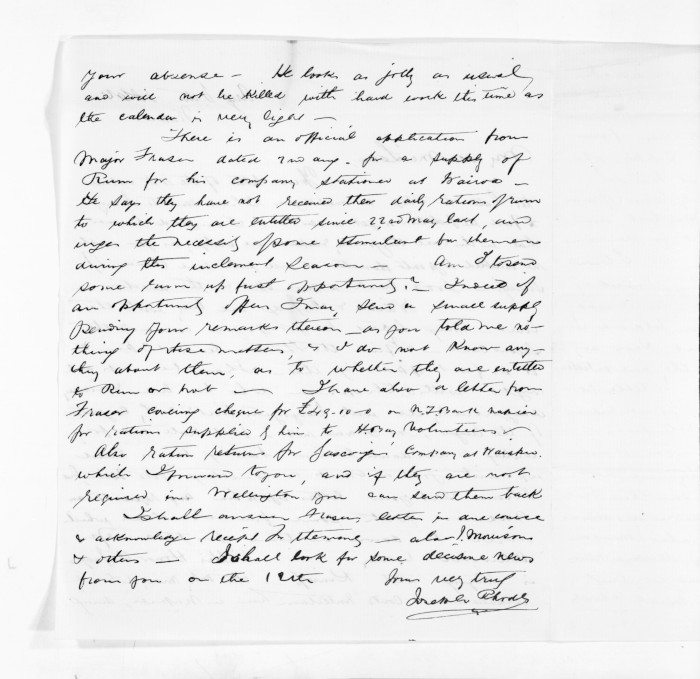 your absense – He looks as jolly as usual,
and will not be killed with hard work this time as
the calendar is very light –
There is an official application from
Major Fraser dated 2nd Aug. for a supply of
Rum for his company stationed at Wairoa –
He says they have not received their daily rations of rum
to which they are entitled since 22nd May last, and
urges the necessity of some stimulant for the men
during this inclement season – Am I to send
some rum up first opportunity? – Indeed if
an opportunity offers I may send a small supply
pending your remarks thereon – as you told me no-
thing of these matters, & I do not know any-
thing about them, as to whether they are entitled
to Rum or not – I have also a letter from
Fraser covering cheque for £49-10-0. on N.Z. Bank Napier
for rations supplied by him to H. Bay Volunteers
Also ration returns for Gascoynes Company at
which I forward to you, and if they are not
required in Wellington you can send them back
I shall answer Frasers letter in due course
& acknowledge receipt for the money – also J. Morrisons
& others – I shall look for some decisive news
from you on the 12th Yours very truly
Joseph Rhodes